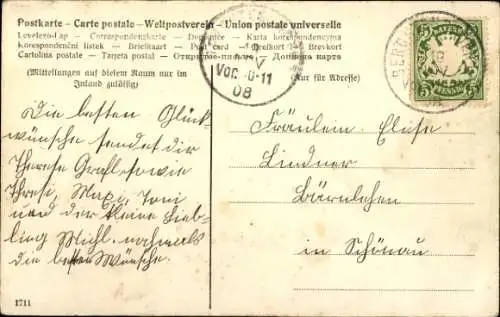 Postkarte - Carte postale - Weltpostverein - Union postale universelle
Levelező-Lap - Correspondenzkarte - Dopisnice - Karta korespondencyjna
Korespondenční listek - Brefkaart - Post card - Brefkort - Brevkort
Cartolina postale - Tarjeta postal - Открытое письмо - Дописна карта
(Mitteilungen auf diesem Raum nur im
Inland zulässig)
(Nur für Adresse)
Vor. 10-11
08
BERCH
BAYERN
5 PFENNIG 5
Die besten Glück-
wünsche sendet dir
Therese Graßl sowie
Thresi, Maxi, Toni
und der kleine Lieb-
ling Michl. nochmals
die besten Wünsche.
Fräulein Elise
Lindner
Bärnlehen
in Schönau
1711